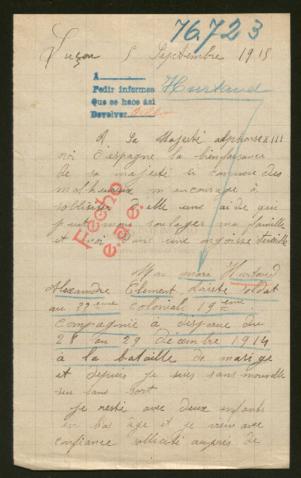 76.723
Luçon 5 Septembre 1915
1
Pedir informes Hurtaud
Que se hace así
Devolver
A Sa Majesté Alphonse XIII
roi d'espagne la bienfaisance
de sa majesté si connue des
malheureux m'encourage à
solliciter d'elle une aide qui
peut nous soulager ma famille
et moi dans une angoisse terrible
Fecho
Mon mari Hurtaud
Alexandre Clement soldat
au 22eme colonial 19eme
compagnie a disparu du
28 au 29 decembre 1914
à la bataille de
et depuis je suis sans nouvelle
sur sans sort
je reste avec deux enfants
en bas âge et je viens avec
confiance auprès de